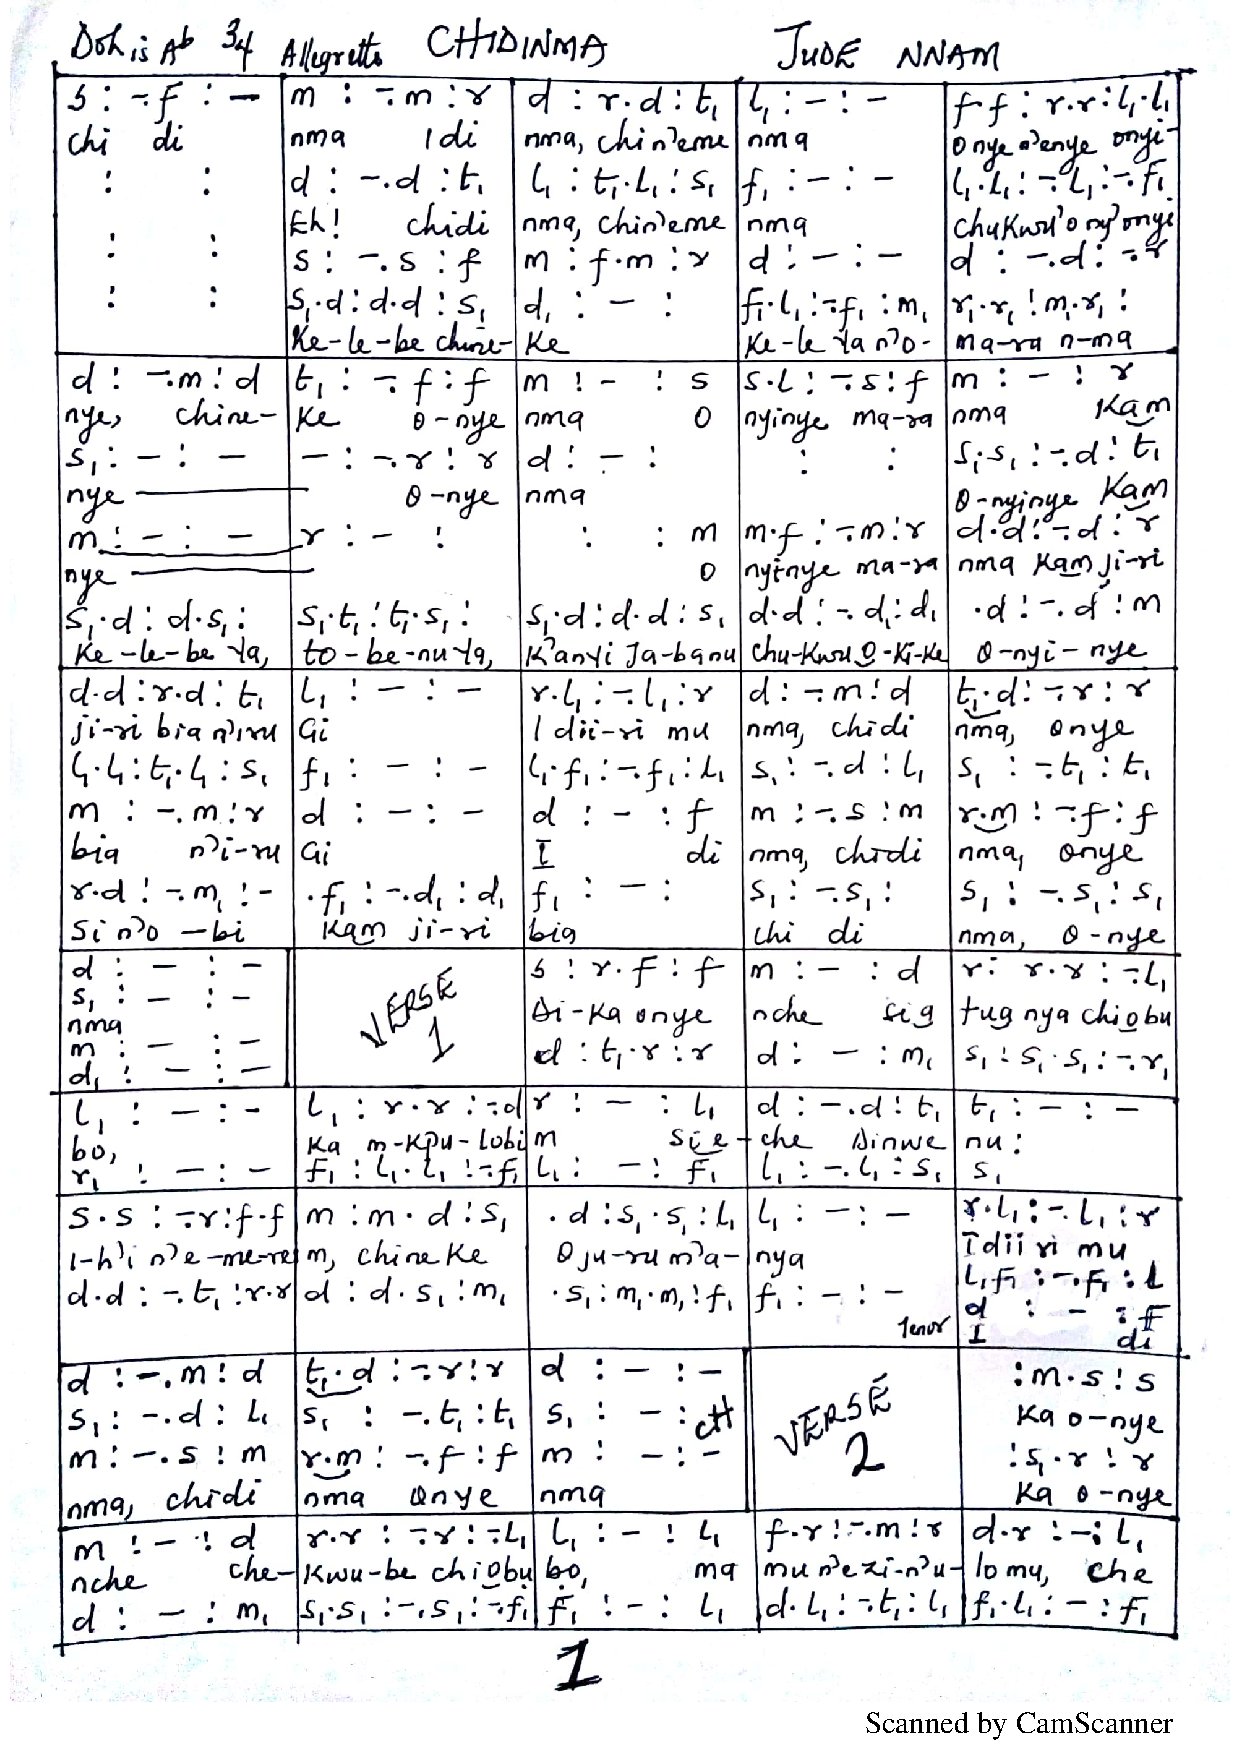 Doh is Ab 3/4 Allegretto CHIDINMA JUDE NNAM
s : -.f : — | m : -.m : r | d : r.d : t₁ | l₁ : - : - | f.f : r.r : l₁.l₁
Chi di | nma I di | nma, chin'eme | nma | Onye n'enye onyi-
: : | d : -.d : t₁ | l₁ : t₁.l₁ : s₁ | f₁ : - : - | l₁.l₁ : -.l₁ : -.f₁
Eh! chidi | nma, chin'eme | nma | chukwu'o ny'onyi
: : | s : -.s : f | m : f.m : r | d : - : - | d : -.d : -.r
: : | s₁.d : d.d : s₁ | d₁ : - : | f₁.l₁ : -.f₁ : m₁ | r₁.r₁ : m₁.r₁ :
Ke-le-be chine- | ke | Ke-le ya n'o- | ma-ra n-ma
d : -.m : d | t₁ : -.f : f | m : - : s | s.l : -.s : f | m : - : r
nye, chine- | ke O-nye | nma O | nyinye ma-ra | nma Kam
s₁ : - : - | - : -.r : r | d : - : | : : | s₁.s₁ : -.d : t₁
nye O-nye | nma | O-nyinye Kam
m : - : - | r : - : | : : m | m.f : -.m : r | d.d : -.d : r
nye | O | nyinye ma-ra | nma Kam ji-ri
s₁.d : d.s₁ : | s₁.t₁ : t₁.s₁ : | s₁.d : d.d : s₁ | d.d : -.d₁ : d₁ | .d : -.d : m
Ke-le-be ya, | to-be-nu ya, | K'anyi Ja-banu | chu-kwu O-Ki-Ke | O-nyi-nye
d.d : r.d : t₁ | l₁ : - : - | r.l₁ : -.l₁ : r | d : -.m : d | t₁.d : -.r : r
ji-ri bia n'iru | Gi | I dii-ri mu | nma, chidi | nma, onye
l₁.l₁ : t₁.l₁ : s₁ | f₁ : - : - | l₁.f₁ : -.f₁ : l₁ | s₁ : -.d : l₁ | s₁ : -.t₁ : t₁
m : -.m : r | d : - : - | d : - : f | m : -.s : m | r.m : -.f : f
bia n'i-ru | Gi | I di | nma, chidi | nma, onye
r.d : -.m₁ : - | .f₁ : -.d₁ : d₁ | f₁ : - : | s₁ : -.s₁ : | s₁ : -.s₁ : s₁
Si n'o-bi | Kam ji-ri | bia | chi di | nma, O-nye
d : - : - | VERSE 1 | s : r.f : f | m : - : d | r : r.r : -.l₁
s₁ : - : -
nma | Di-ka onye | nche sig | tug nya chiobu
m : - : - | d : t₁.r : r | d : - : m₁ | s₁ : s₁.s₁ : -.r₁
d₁ : - : -
l₁ : - : - | l₁ : r.r : -.d | r : - : l₁ | d : -.d : t₁ | t₁ : - : -
bo, | Ka m-kpu-lobi | m si e- | che Dinwe | nu :
r₁ : - : - | f₁ : l₁.l₁ : -.f₁ | l₁ : - : f₁ | l₁ : -.l₁ : s₁ | s₁
s.s : -.r : f.f | m : m.d : s₁ | .d : s₁.s₁ : l₁ | l₁ : - : - | r.l₁ : -.l₁ : r
I-h'i n'e-me-re | m, chineke | O ju-ru m'a- | nya | I dii ri mu
d.d : -.t₁ : r.r | d : d.s₁ : m₁ | .s₁ : m₁.m₁ : f₁ | f₁ : - : - | l₁.f₁ : -.f₁ : l
d : - : f
Tenor | I di
d : -.m : d | t₁.d : -.r : r | d : - : - | VERSE 2 | : m.s : s
s₁ : -.d : l₁ | s₁ : -.t₁ : t₁ | s₁ : - : CH | Ka o-nye
m : -.s : m | r.m : -.f : f | m : - : - | : s₁.r : r
nma, chidi | nma Onye | nma | Ka o-nye
m : - : d | r.r : -.r : -.l₁ | l₁ : - : l₁ | f.r : -.m : r | d.r : - : l₁
nche che- | kwu-be chiobu | bo, ma | mu n'ezi-n'u- | lo mu, che
d : - : m₁ | s₁.s₁ : -.s₁ : -.f₁ | f₁ : - : l₁ | d.l₁ : -.t₁ : l₁ | f₁.l₁ : - : f₁
1
Scanned by CamScanner